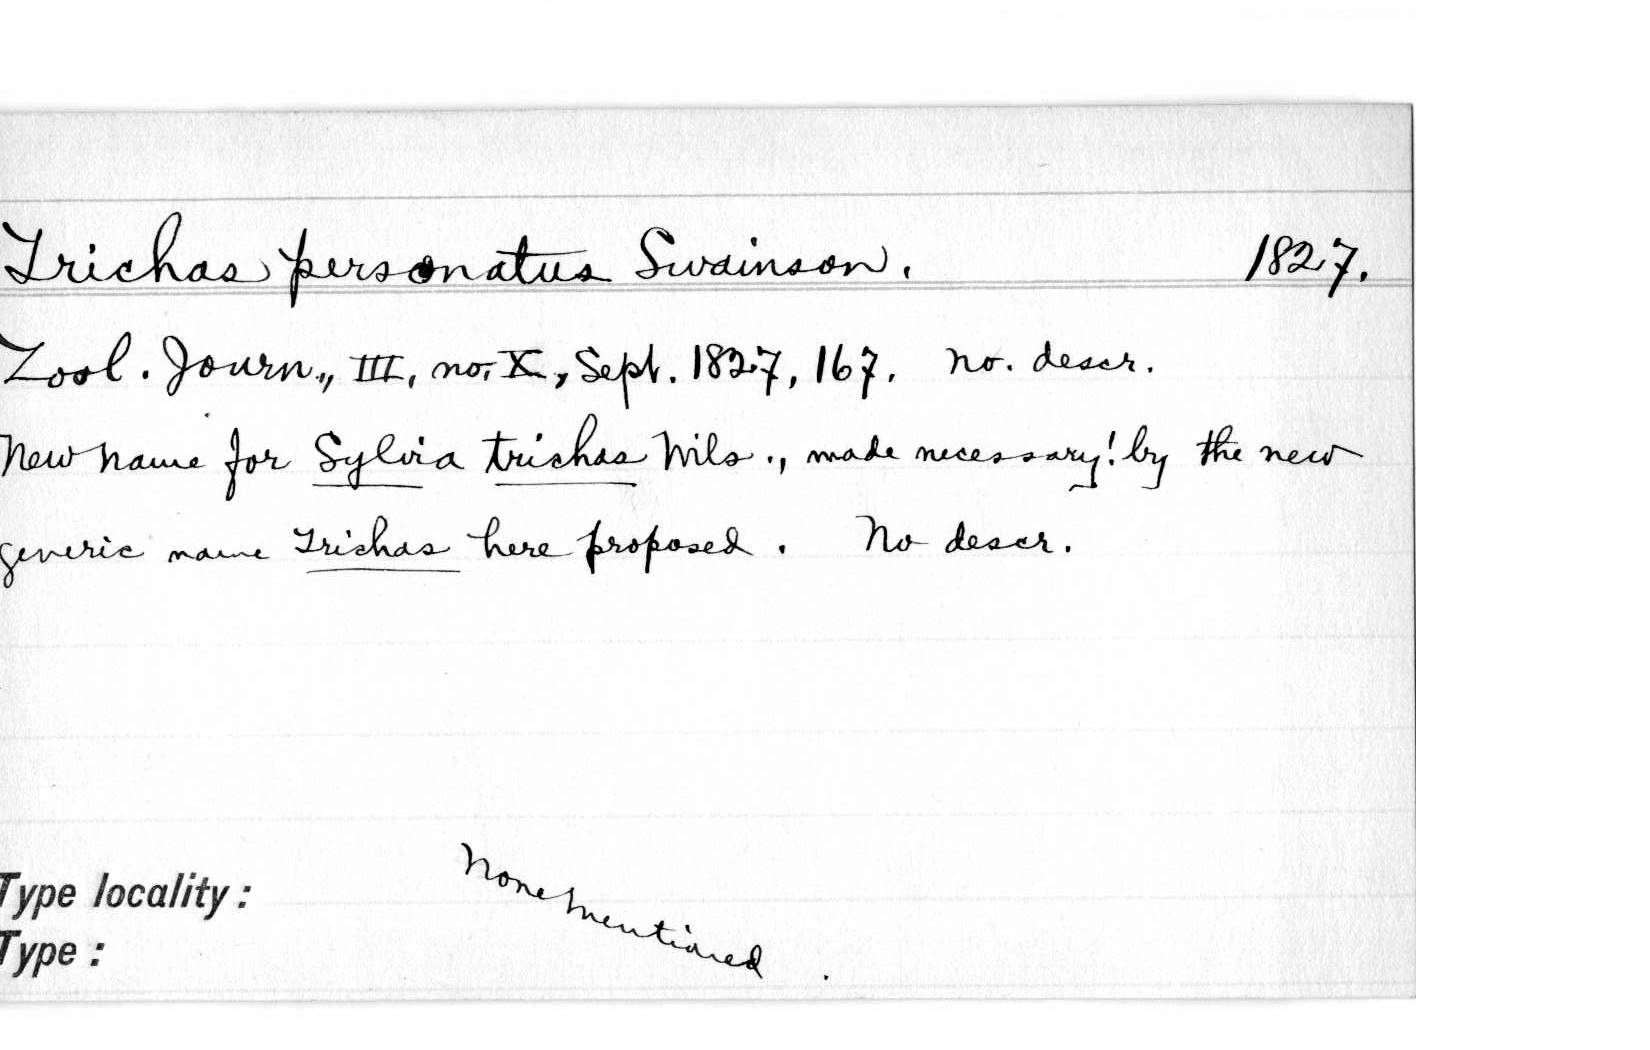 Trichas personatus Swainson. 1827.
Zool. Journ., III, no. X, Sept. 1827, 167. No. descr.
New name for Sylvia trichas Wils., made necessary! by the new
generic name Trichas here proposed. No descr.
Type locality: None mentioned.
Type: